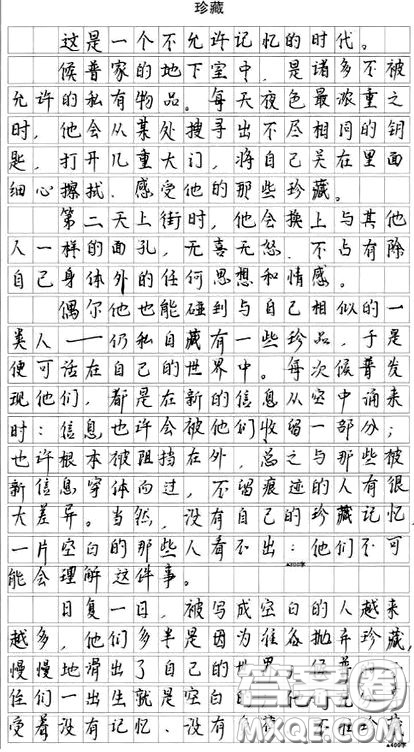 珍藏
这是一个不允许记忆的时代。
候普家的地下室中,是诸多不被
允许的私有物品。每天夜色最浓重之
时,他会从某处搜寻出不尽相同的钥
匙,打开几重大门,将自己关在里面
细心擦拭、感受他的那些珍藏。
第二天上街时,他会换上与其他
人一样的面孔,无喜无怒,不占有除
自己身体外的任何思想和情感。
偶尔他也能碰到与自己相似的一
类人——仍私自藏有一些珍品,于是
便可活在自己的世界中。每次候普发
现他们,都是在新的信息从空中涌来
时:信息也许会被他们收留一部分;
也许根本被阻挡在外,总之与那些被
新信息穿体而过,不留痕迹的人有很
大差异。当然,没有自己的珍藏记忆,
一片空白的那些人看不出:他们不可
能会理解这件事。
▲200字
日复一日,被写成空白的人越来
越多,他们多半是因为往备抛弃珍藏,
慢慢地滑出了自己的世界。候普
任们一出生就是空白的
受着没有记忆、没有
答案圈
MXQE.COM
▲400字